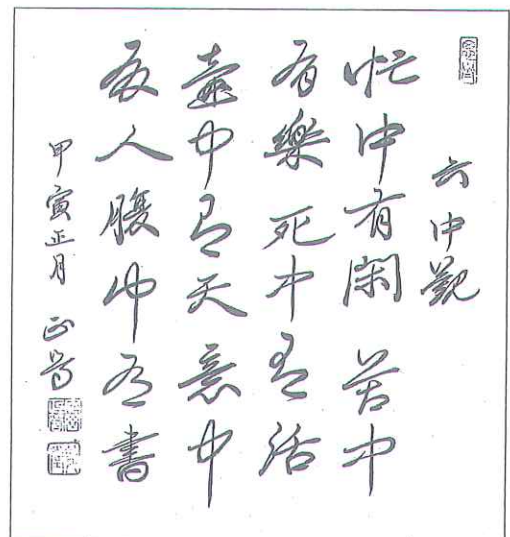 六中觀
忙中有閑 苦中
有樂 死中有活
壷中有天意中
有人腹中有書
甲寅正月 正篤